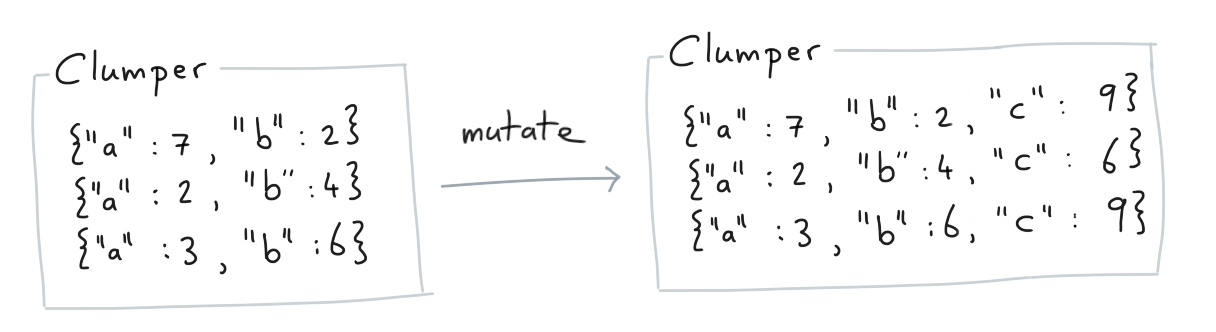 Clumper
{"a" : 7 , "b" : 2}
{"a" : 2 , "b" : 4}
{"a" : 3 , "b" : 6}
mutate
Clumper
{"a" : 7 , "b" : 2 , "c" : 9}
{"a" : 2 , "b" : 4 , "c" : 6}
{"a" : 3 , "b" : 6 , "c" : 9}